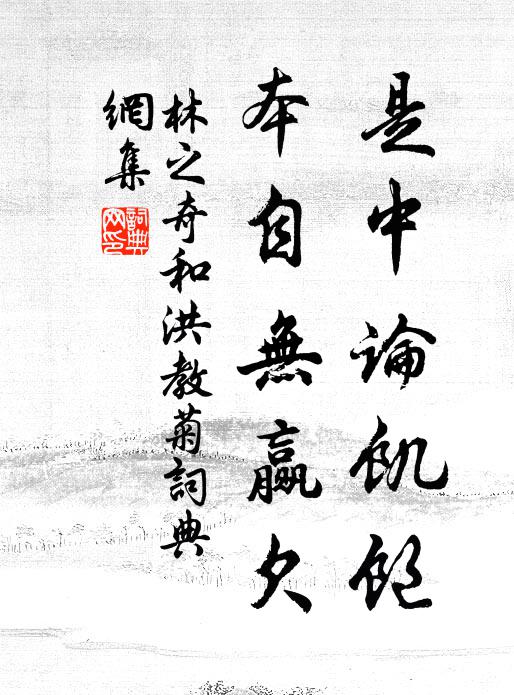 是中論飢飽
本自無贏欠
林之奇和洪教菊詞典
網集
詞典
网印